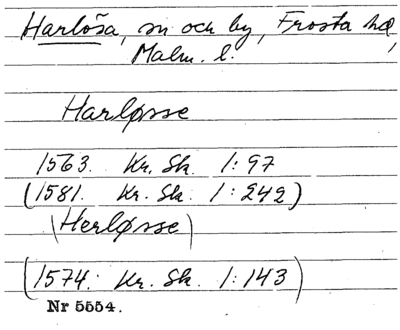 Harlösa, sn och by, Frosta hd,
Malm. l.
Harløsse
1563. Kr. Sk. 1:97
(1581. Kr. Sk. 1:242)
(Herløsse)
(1574. Kr. Sk. 1:143)
Nr 5554.